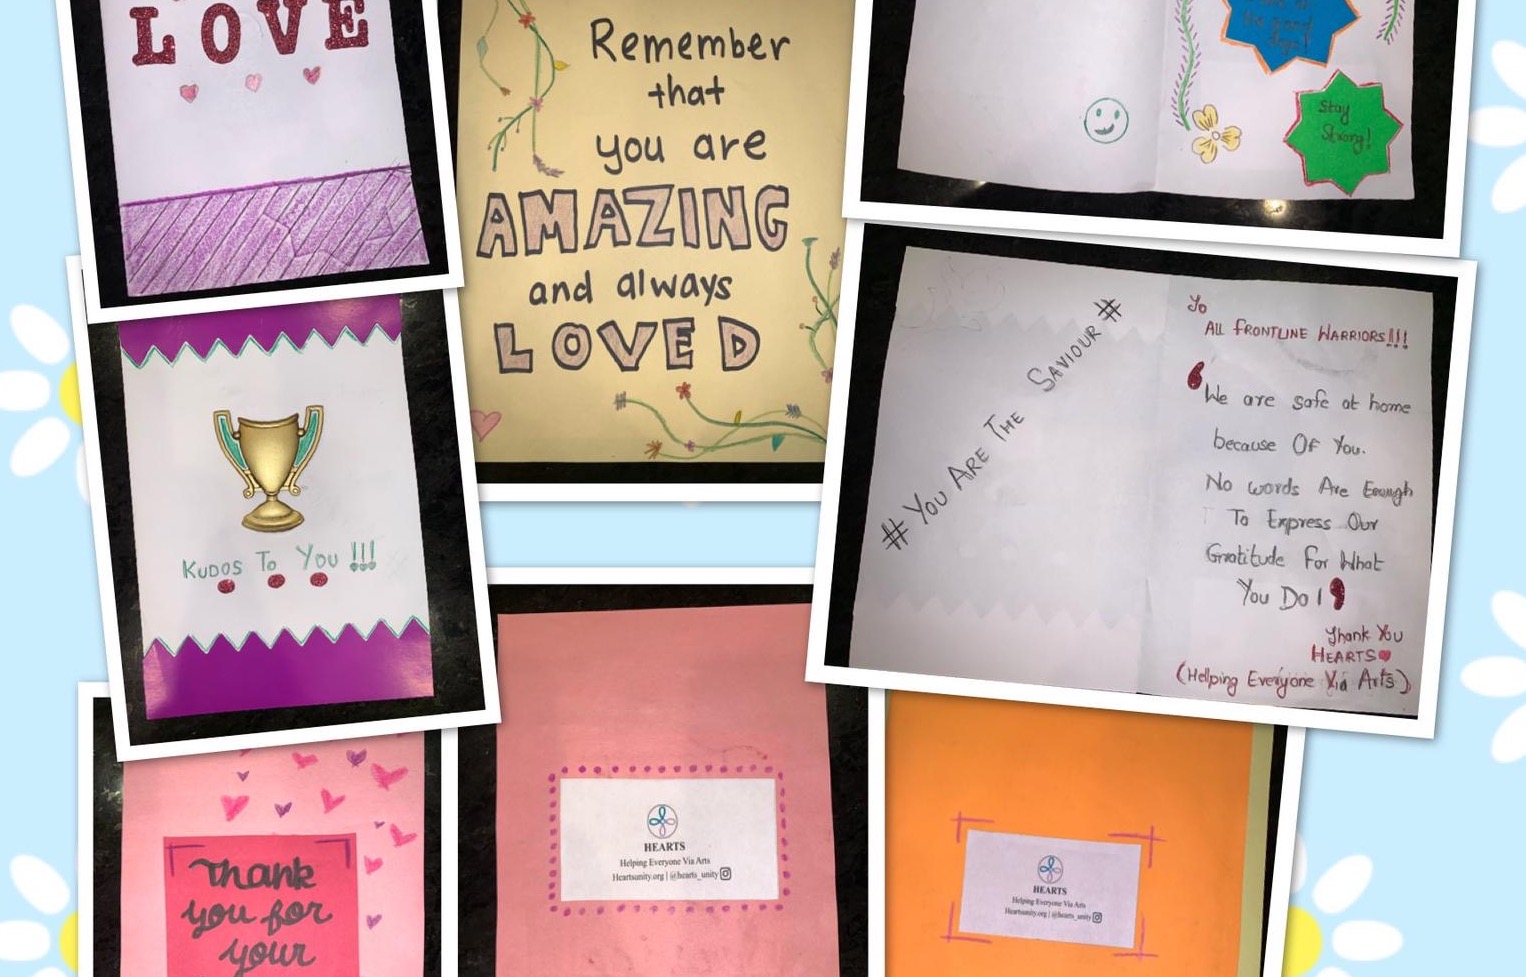 LOVE
Remember
that
you are
AMAZING
and always
LOVED
the good
days!
Stay
Strong!
KUDOS TO YOU !!!
# YOU ARE THE SAVIOUR #
To
ALL FRONTLINE WARRIORS!!!
We are safe at home
because Of You.
No words Are Enough
To Express Our
Gratitude For What
You Do!
Thank You
HEARTS
(Helping Everyone Via Arts)
Thank
you for
your
HEARTS
Helping Everyone Via Arts
Heartsunity.org | @hearts_unity
HEARTS
Helping Everyone Via Arts
Heartsunity.org | @hearts_unity